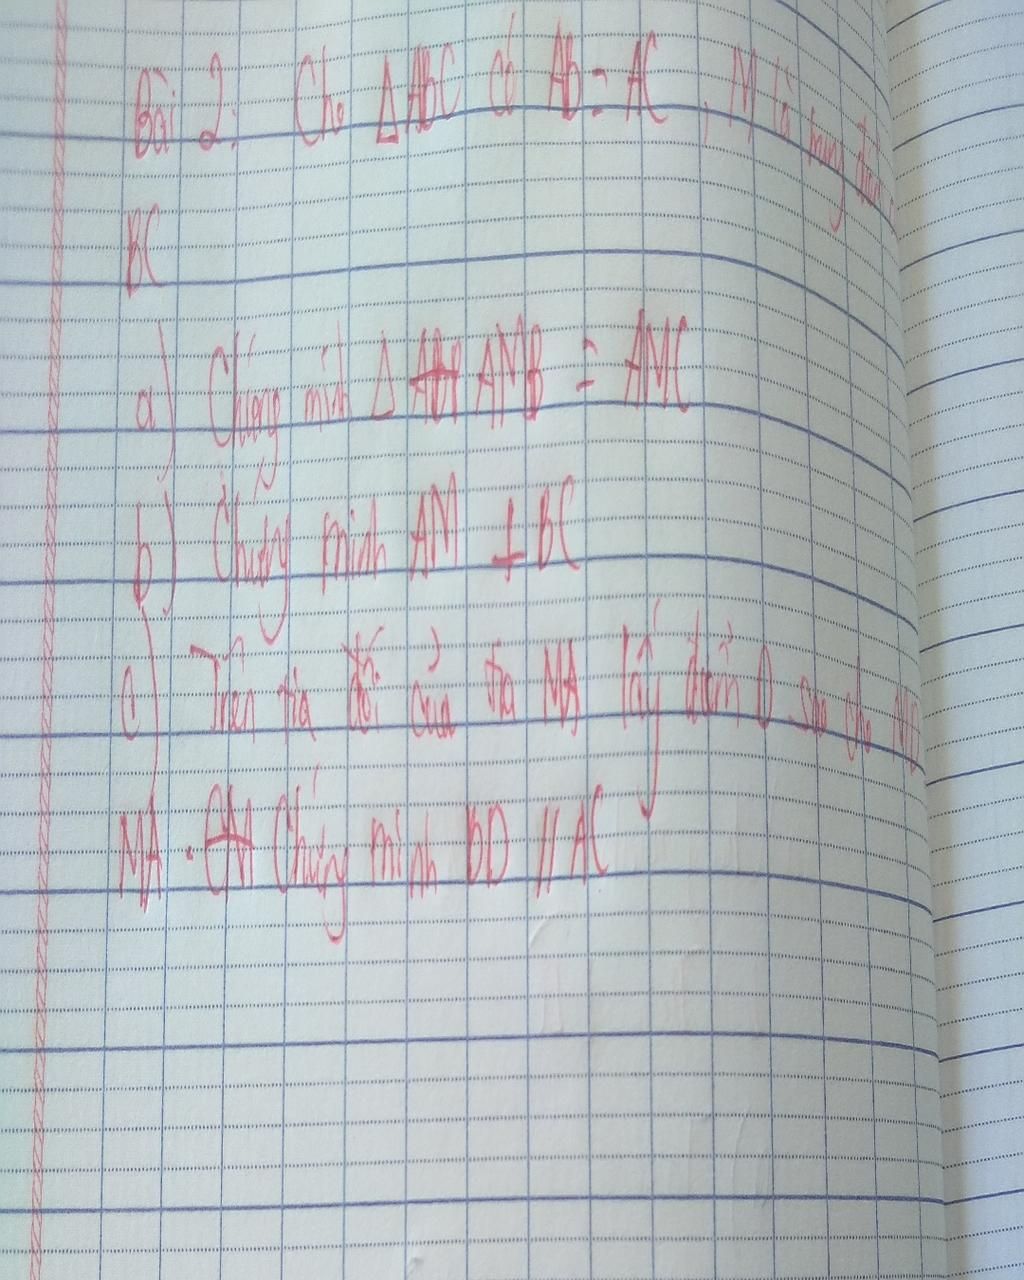 Bài 2: Cho ΔABC có AB = AC, M là trung điểm
BC
a) Chứng minh Δ AMB = AMC
b) Chứng minh AM ⊥ BC
c) Trên tia đối của tia MA lấy điểm D sao cho MD
MA. Chứng minh BD // AC